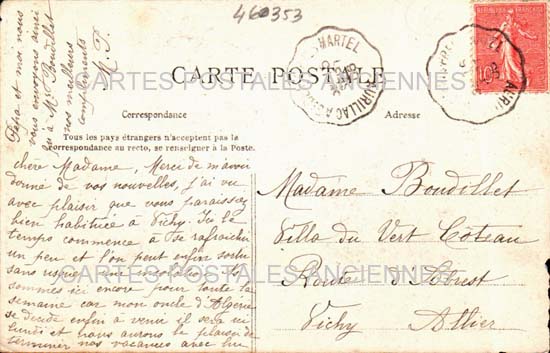 460353
Papa et moi nous
vous envoyons ainsi
qu'à Mr Boudillet
nos meilleurs
compliments
M. P.
MARTEL
AURILLAC A
CARTE POSTALE
CARTES POSTALES ANCIENNES
Correspondance
Adresse
Tous les pays étrangers n'acceptent pas la
correspondance au recto, se renseigner à la Poste.
chère Madame, Merci de m'avoir
donné de vos nouvelles, j'ai vu
avec plaisir que vous paraissez
bien habituée à Vichy. Ici le
temps commence à se rafraichir
un peu et l'on peut enfin sortir
sans
sommes ici encore pour toute la
semaine car mon oncle d'Algérie
se décide enfin à venir il sera ici
lundi et nous aurons le plaisir de
terminer nos vacances avec lui
Madame Boudillet
Villa du Vert Coteau
Route d'Abrest
Vichy Allier
CARTES POSTALES ANCIENNES